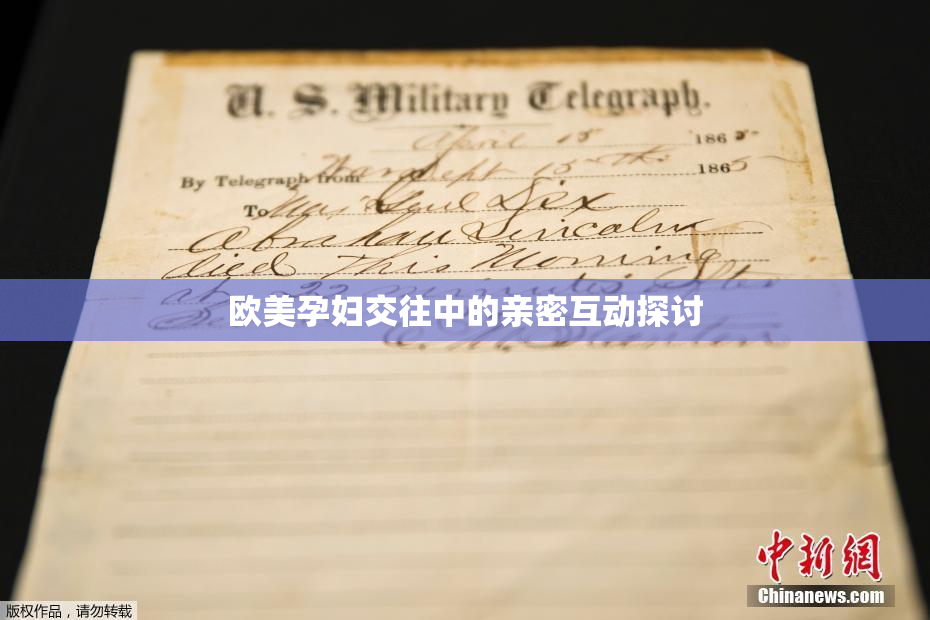 U. S. Military Telegraph.
April 15 1865
By Telegraph from War Dept 15th 1865
To Maj Genl Dix
Abraham Lincoln
died This Morning
at 22 minutes after
欧美孕妇交往中的亲密互动探讨
E. M. Stanton
中新網
Chinanews.com
版权作品,请勿转载